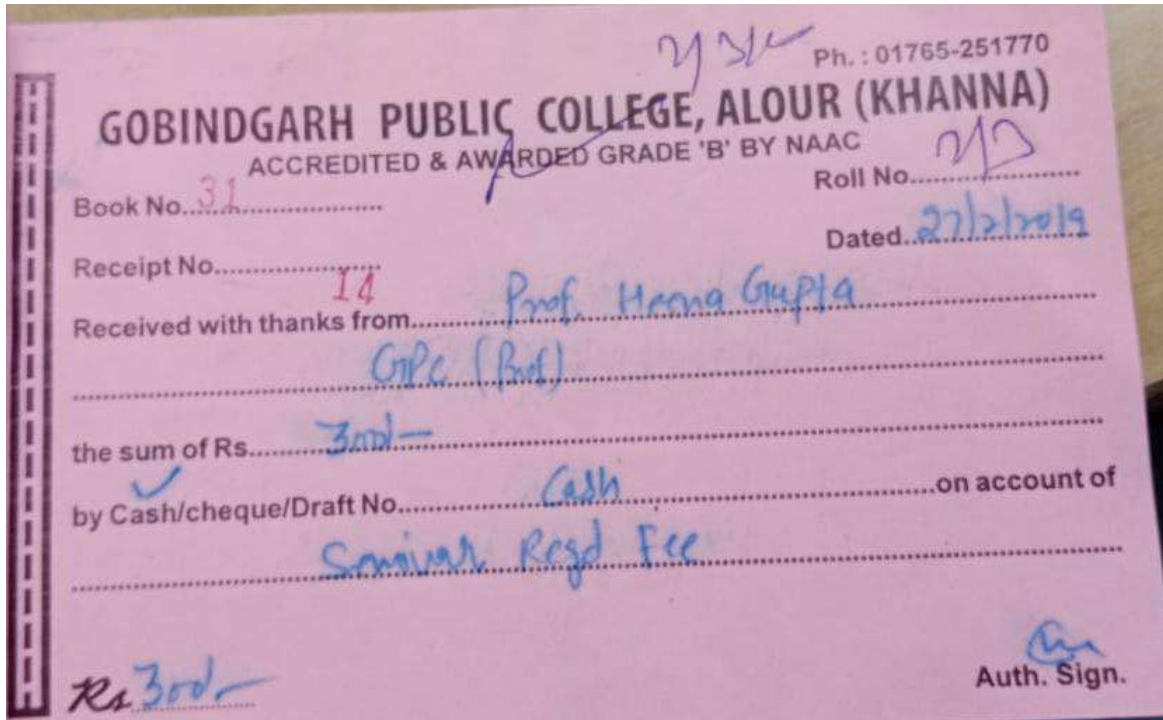 Ph. : 01765-251770
GOBINDGARH PUBLIC COLLEGE, ALOUR (KHANNA)
ACCREDITED & AWARDED GRADE 'B' BY NAAC
Roll No....................
Book No. 31
Dated. 27/2/2019
Receipt No.................... 14
Received with thanks from.......... Prof. Heena Gupta
GPC (Prof)
the sum of Rs.......... 300/-
by Cash/cheque/Draft No.......... Cash ..........on account of
Seminar Regd Fee
Rs 300/-
Auth. Sign.